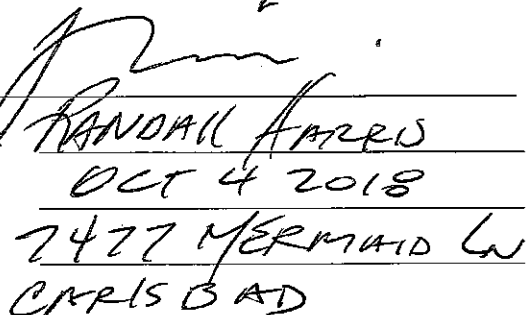 RANDALL HARRIS
OCT 4 2018
7477 MERMAID LN
CARLSBAD